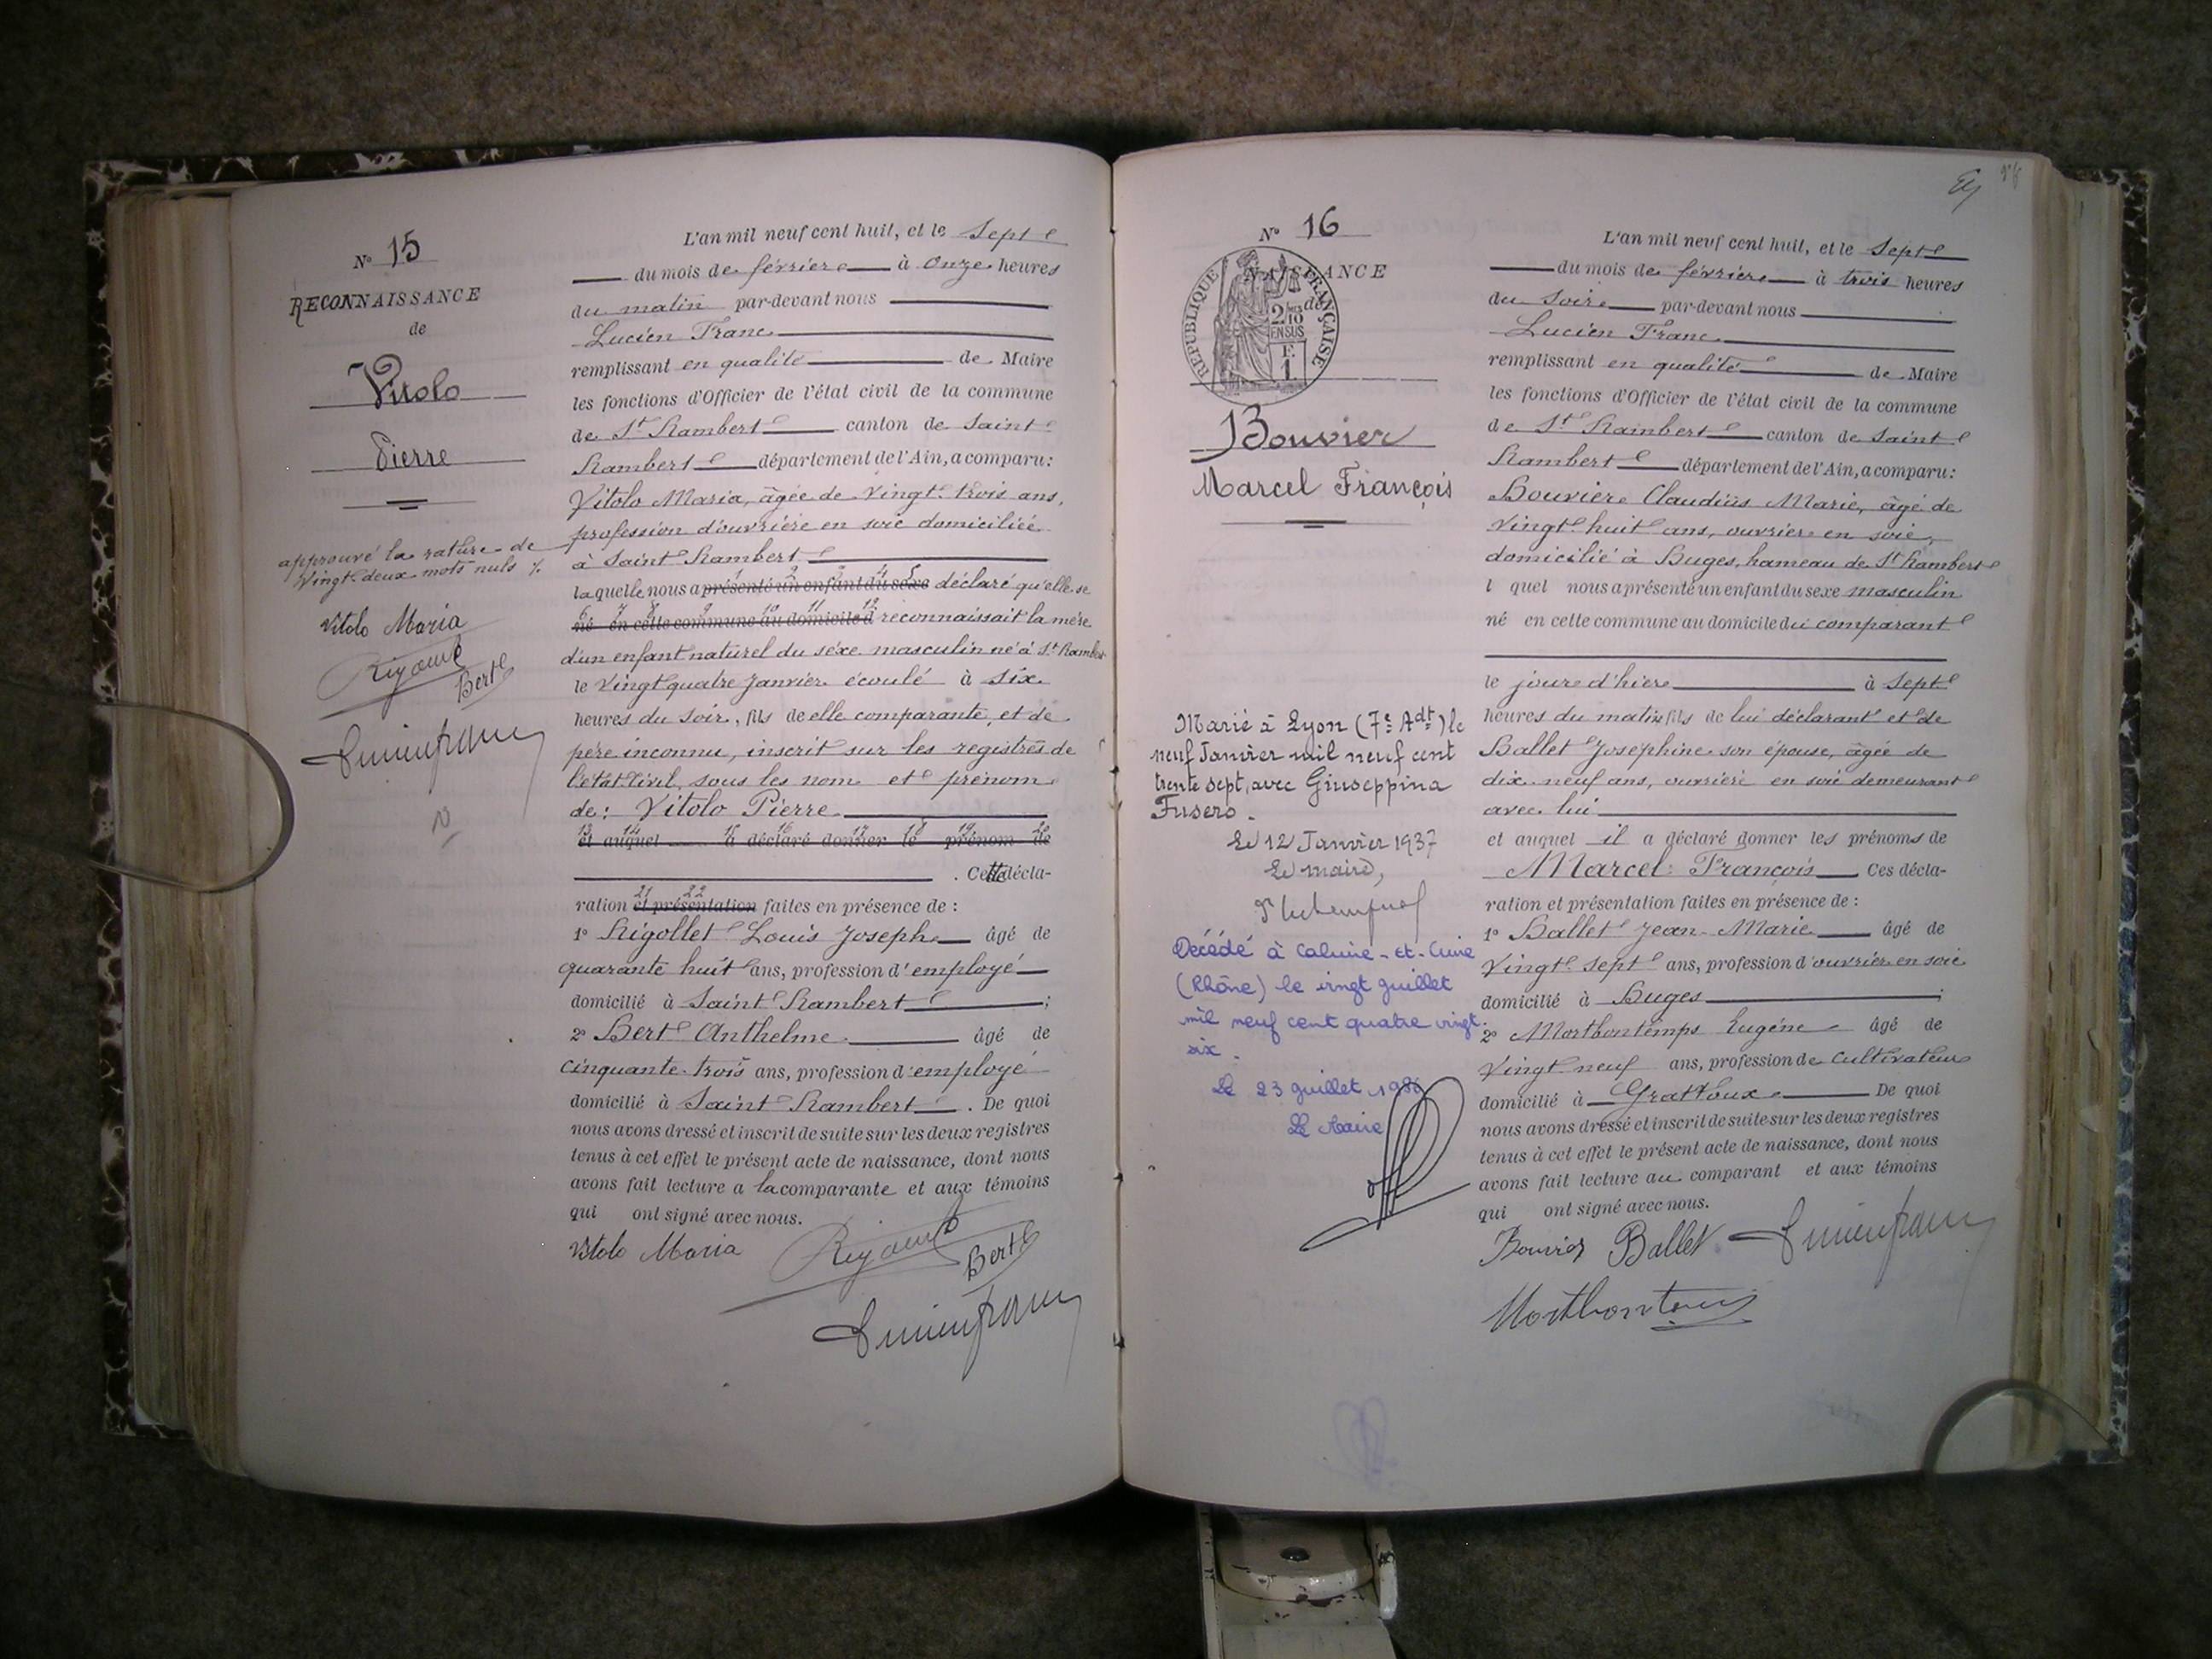 N° 15
RECONNAISSANCE
de
Vitolo
Pierre
approuvé la rature de
vingt deux mots nuls
Vitolo Maria
Bert
L'an mil neuf cent huit, et le sept
du mois de février à onze heures
du matin par-devant nous
Lucien Franc
remplissant en qualité de Maire
les fonctions d'Officier de l'état civil de la commune
de St Rambert canton de Saint
Rambert département de l'Ain, a comparu:
Vitolo Maria, âgée de vingt trois ans,
profession d'ouvrière en soie domiciliée
à Saint Rambert
1 2 3 4 5
laquelle nous a présenté un enfant du sexe déclaré qu'elle se
6 7 8 9 10 11 12
né en cette commune au domicile d reconnaissait la mère
d'un enfant naturel du sexe masculin né à St Rambert
le vingt quatre janvier écoulé à six
heures du soir, fils de elle comparante, et de
père inconnu, inscrit sur les registres de
l'état civil, sous les nom et prénom
de: Vitolo Pierre
13 14 15 16 17 18 19 20
et auquel a déclaré donner le prénom de
. Cette décla-
21 22
ration et présentation faites en présence de :
1° Rigollet Louis Joseph âgé de
quarante huit ans, profession d'employé
domicilié à Saint Rambert ;
2° Bert Anthelme âgé de
cinquante trois ans, profession d'employé
domicilié à Saint Rambert . De quoi
nous avons dressé et inscrit de suite sur les deux registres
tenus à cet effet le présent acte de naissance, dont nous
avons fait lecture a la comparante et aux témoins
qui ont signé avec nous.
Vitolo Maria
Bert
N° 16
NAISSANCE
de
RÉPUBLIQUE FRANÇAISE
2/10
EN SUS
F.
1
Bouvier
Marcel François
Marié à Lyon (7e Adt) le
neuf Janvier mil neuf cent
trente sept, avec Giuseppina
Fusero.
Le 12 Janvier 1937
Le maire,
Décédé à Caluire-et-Cuire
(Rhône) le vingt juillet
mil neuf cent quatre vingt
six.
Le 23 juillet 1986
Le Maire
L'an mil neuf cent huit, et le sept
du mois de février à trois heures
du soir par-devant nous
Lucien Franc
remplissant en qualité de Maire
les fonctions d'Officier de l'état civil de la commune
de St Rambert canton de Saint
Rambert département de l'Ain, a comparu:
Bouvier Claudius Marie, âgé de
vingt huit ans, ouvrier en soie,
domicilié à Buges, hameau de St Rambert
l quel nous a présenté un enfant du sexe masculin
né en cette commune au domicile du comparant
le jour d'hier à sept
heures du matin fils de lui déclarant et de
Ballet Joséphine son épouse, âgée de
dix neuf ans, ouvrière en soie demeurant
avec lui
et auquel il a déclaré donner les prénoms de
Marcel François Ces décla-
ration et présentation faites en présence de :
1° Ballet Jean-Marie âgé de
vingt sept ans, profession d'ouvrier en soie
domicilié à Buges ;
2° Mortbontemps Eugène âgé de
vingt neuf ans, profession de cultivateur
domicilié à Grattoux De quoi
nous avons dressé et inscrit de suite sur les deux registres
tenus à cet effet le présent acte de naissance, dont nous
avons fait lecture au comparant et aux témoins
qui ont signé avec nous.
Bouvier Ballet